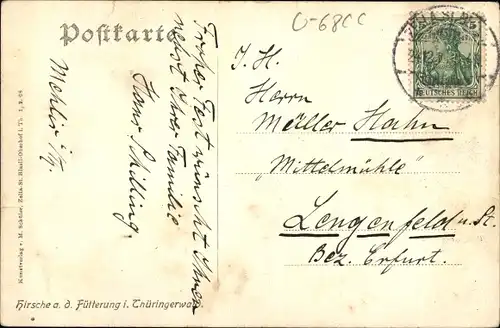 Postkarte
U-68CC
DEUTSCHES REICH
J. H.
Herrn
Müller Hahn
"Mittelmühle"
Lengenfeld u. St.
Bez. Erfurt.
Frohes Fest wünscht Ihnen
nebst Ihrer Familie
Hans Schilling
Mehlis i/Th.
Hirsche a. d. Fütterung i. Thüringerwald.
Kunstverlag v. M. Schöler, Zella-St. Blasii-Oberhof i. Th.